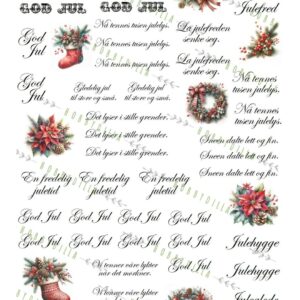 GOD JUL
GOD JUL
Julefred
Nå tennes tusen julelys.
Nå tennes tusen julelys.
La julefreden
senke seg.
La julefreden
senke seg.
God
Jul
God
Jul
Gledelig jul
til store og små.
Gledelig jul
til store og små.
Nå tennes
tusen julelys.
Nå tennes
tusen julelys.
Det lyser i stille grender.
Det lyser i stille grender.
Det lyser i stille grender.
Sneen dalte lett og fin.
Sneen dalte lett og fin.
En fredelig
juletid
En fredelig
juletid
God Jul
God Jul
God Jul
God Jul
God Jul
God Jul
God Jul
God Jul
Julehygge
Julehygge
Vi tenner våre lykter
når det mørkner.
Vi tenner våre lykter
Juleglede